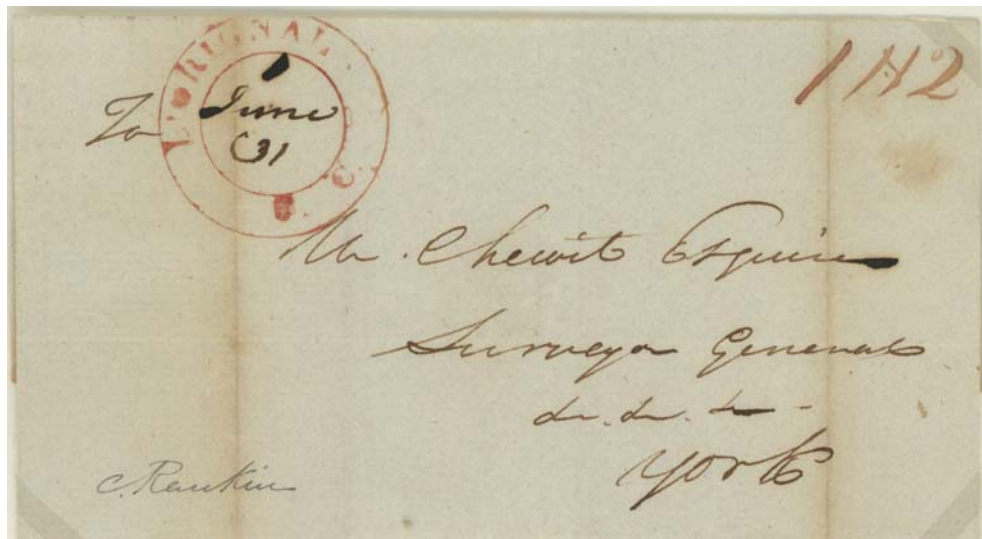 L'ORIGNAL
1 N2
To
June
31
Chewit Esquire
Surveyor General
&c. &c. &c.
York
C. Rankin